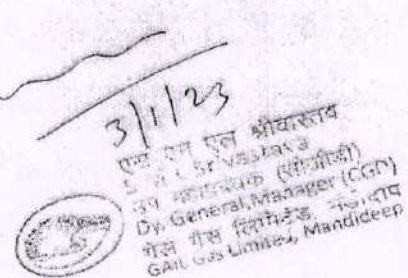 3/1/23
एस एम एल श्रीवास्तव
S M L Srivastava
उप महाप्रबंधक (सीजीडी)
Dy. General Manager (CGD)
गेल गैस लिमिटेड, मंडीदीप
GAIL Gas Limited, Mandideep